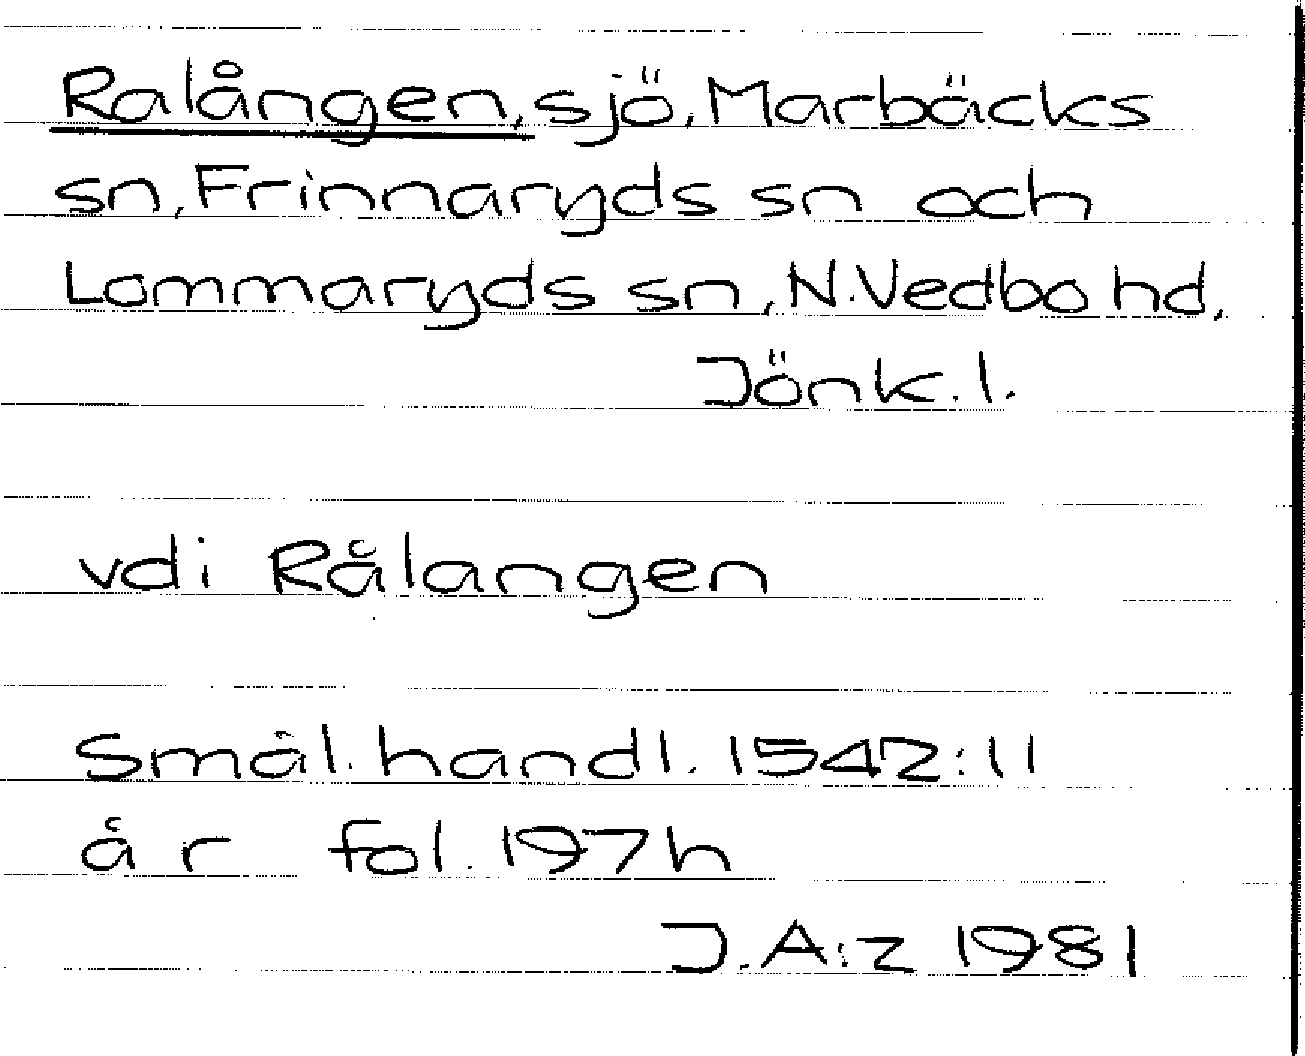 Ralången, sjö, Marbäcks
sn, Frinnaryds sn och
Lommaryds sn, N. Vedbo hd,
Jönk. l.
vdi Rålangen
Smål. handl. 1542:11
år fol. 197h
J. A:z 1981